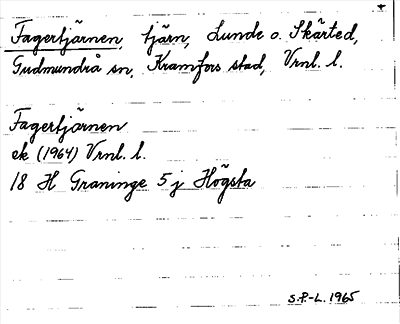 Fagertjärnen, tjärn, Lunde o. Skärted,
Gudmundrå sn, Kramfors stad, Vrnl. l.
Fagertjärnen
ek (1964) Vrnl. l.
18 H Graninge 5 j Högsta
S.P-L. 1965